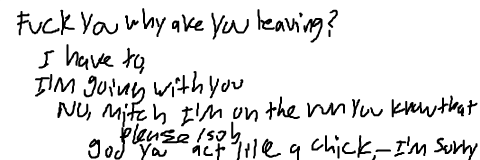 Fuck you why are you leaving?
I have to,
I'm going with you
No, Mitch I'm on the run you know that
please /sob
god you act like a chick,—I'm sorry